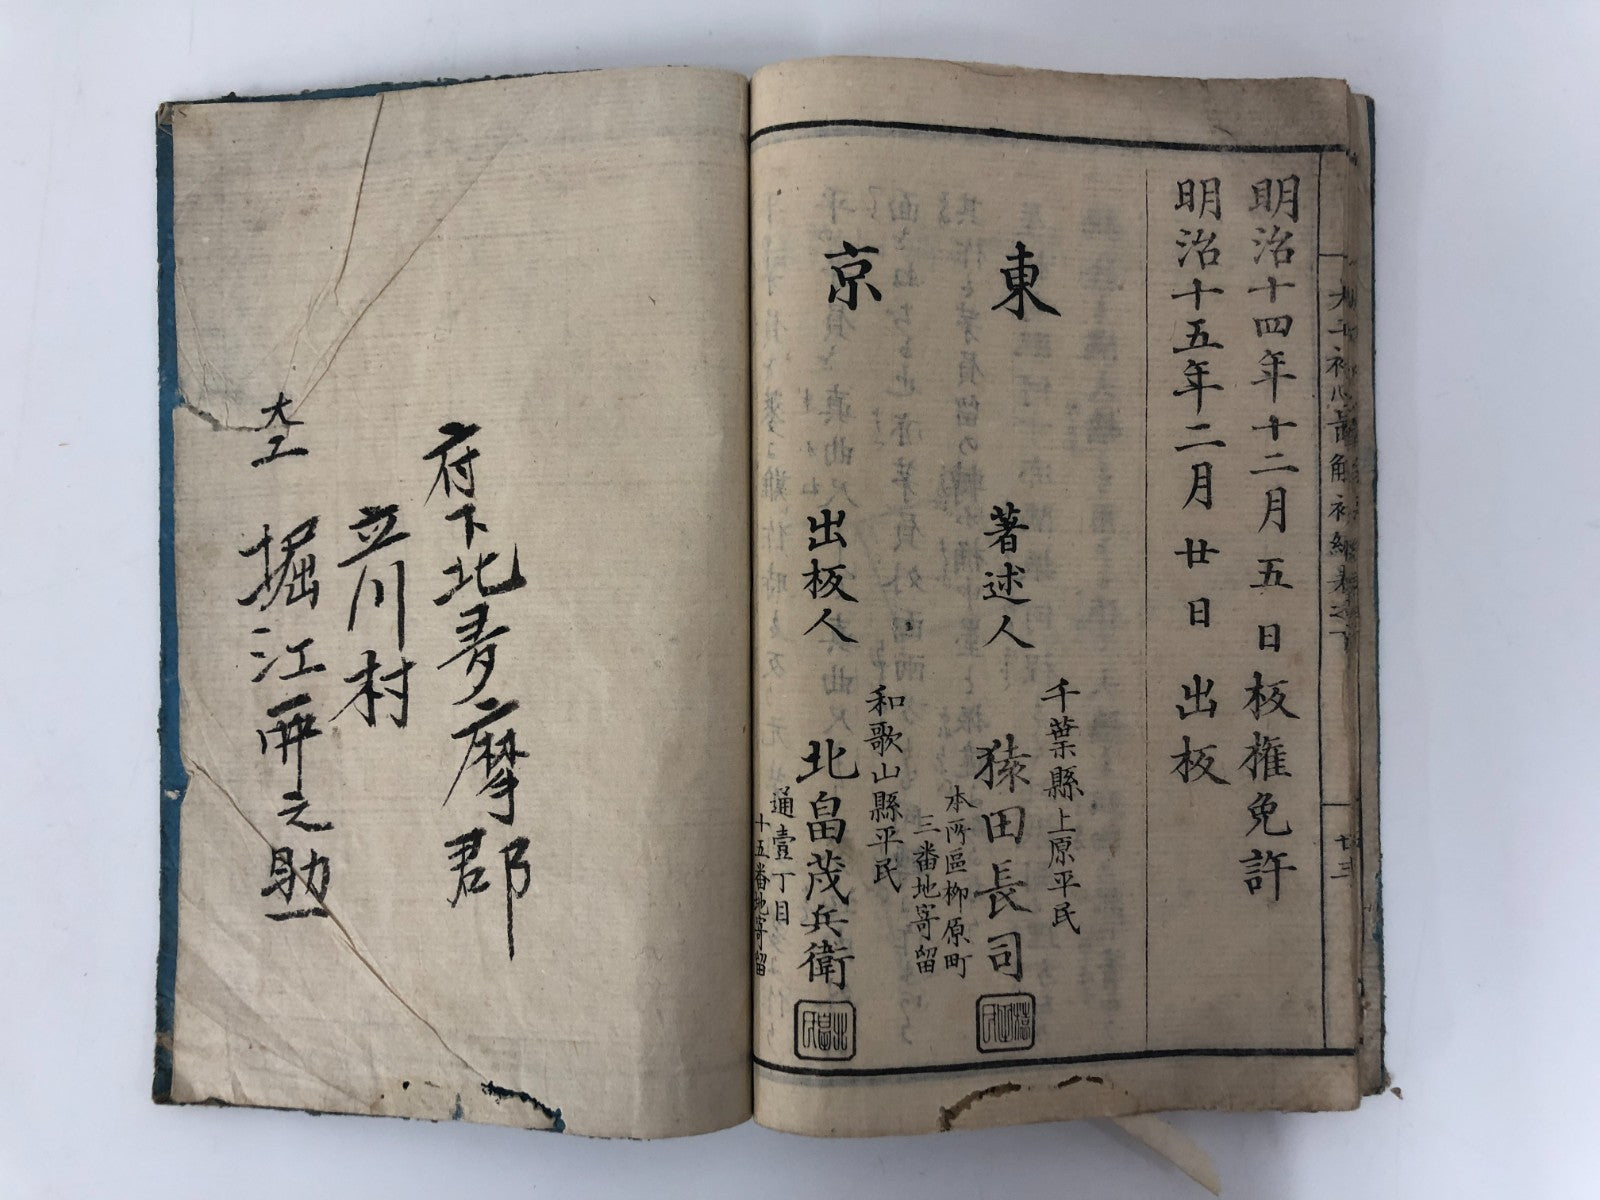 明治十四年十二月五日板権免許
明治十五年二月廿日出板
東京
千葉縣上原平民
著述人 猿田長司
本所區柳原町
三番地寄留
和歌山縣平民
出板人 北畠茂兵衛
通壹丁目
十五番地寄留
廿三
府下北多摩郡
立川村
大工 堀江
之助